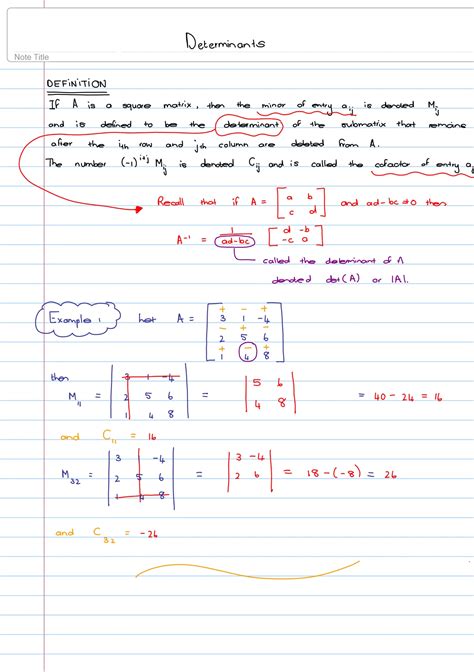 Determinants
Note Title
DEFINITION
If A is a square matrix, then the minor of entry aij is denoted Mij
and is defined to be the determinant of the submatrix that remains
after the ith row and jth column are deleted from A.
The number (-1)^i+j Mij is denoted Cij and is called the cofactor of entry a
Recall that if A = [ a b
c d ] and ad-bc ≠ 0 then
A^-1 = 1/(ad-bc) [ d -b
-c a ]
called the determinant of A
denoted det(A) or |A|.
Example 1 Let A = [ + - +
3 1 -4
- + -
2 5 6
+ - +
1 4 8 ]
then | 3 1 -4 |
M11 = | 2 5 6 | = | 5 6 | = 40 - 24 = 16
| 1 4 8 | | 4 8 |
and C11 = 16
| 3 -4 |
M32 = | 2 5 6 | = | 3 -4 | = 18 - (-8) = 26
| 1 4 8 | | 2 6 |
and C32 = -26